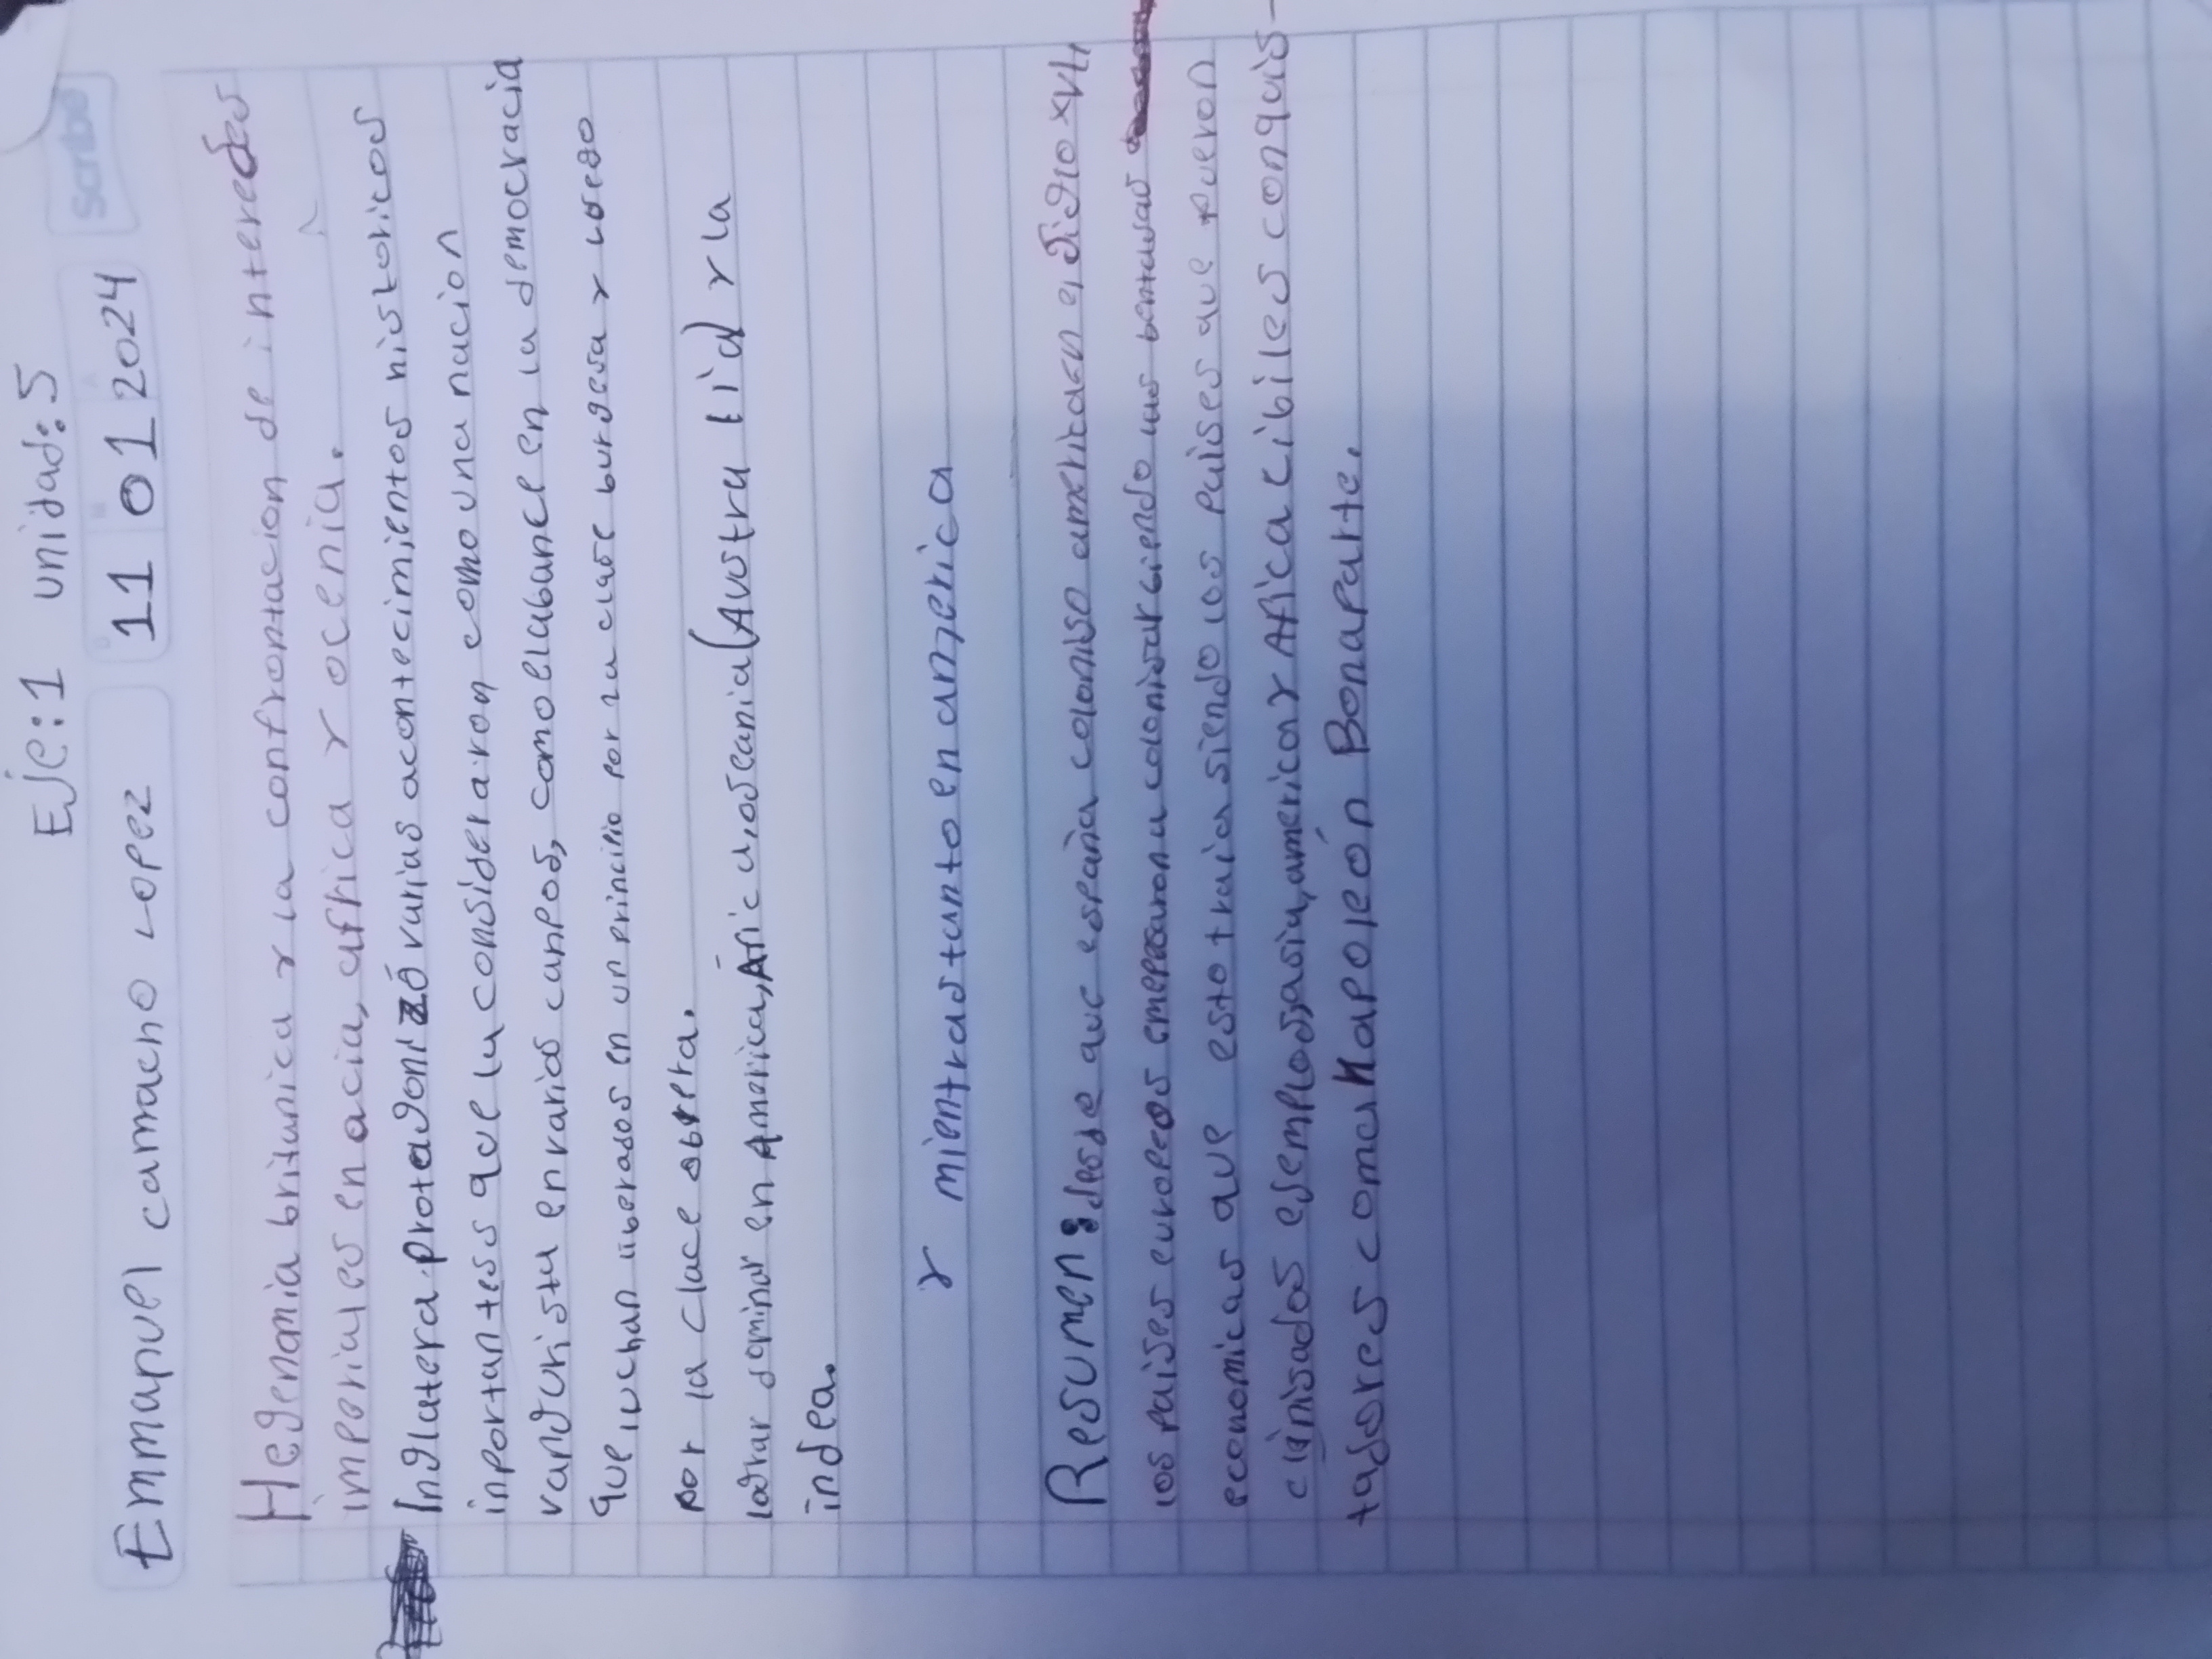 Eje:1 unidad:5
Emmanuel camacho Lopez 11 01 2024
Scribe
Hegenomia britunica y la confrontacion de interedes
imperiales en acia, africa y ocenia.
Inglatera protagonizó varias acontecimientos historicos
inportantes que la consideraron como una nacion
vangurista en varios canpos, como el abance en la democracia
que luchan liberados en un principio por la clase burgesa y luego
por la clace obrera.
lograr dominar en America, Áfica, oseania (Australia) y la
indea.
y mientrastanto en america
Resumen: desde que españa coloniso america en el siglo XVII
los paises europeos empesaron a colonisar biendo las bentasas
economicas que esto traia siendo los paises que fueron
clonisados ejemplos, asia, america y Afica cibiles conquis-
tadores como Napoleón Bonaparte.